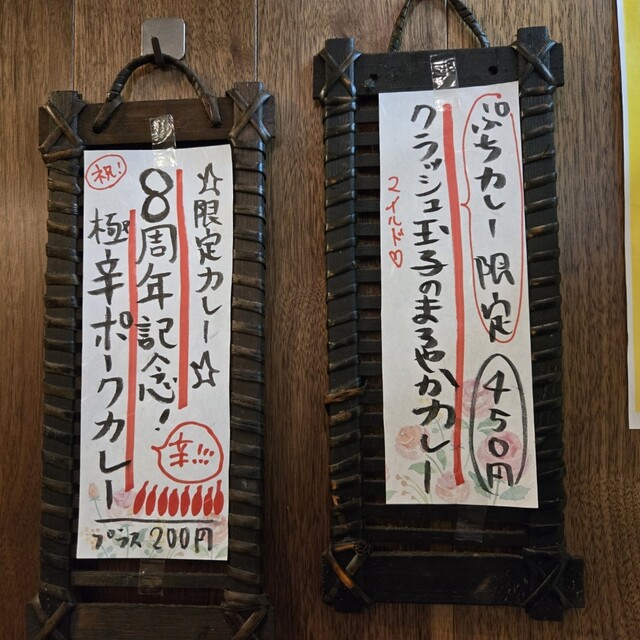 ☆限定カレー☆
祝!
8周年記念!
極辛ポークカレー
辛!!!
プラス200円
ぷちカレー限定
450円
クラッシュ玉子のまろやかカレー
マイルド♡